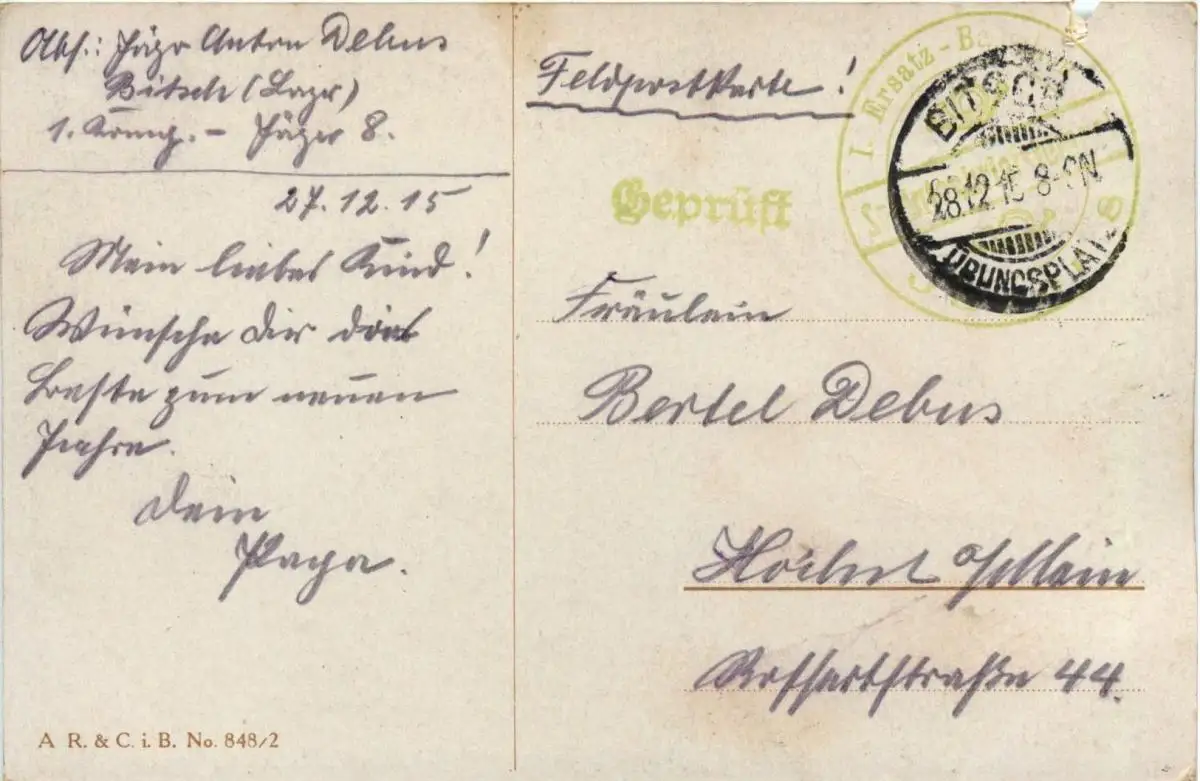 Abs.: Jäger Anton Debus
Bitsch (Lager)
1. Komp. - Jäger 8.
27.12.15
Mein liebes Kind!
Wünsche Dir das
Beste zum neuen
Jahre.
Dein
Papa.
A R. & C. i. B. No. 848/2
Feldpostkarte!
Geprüft
I. Ersatz-
BITSCH
28.12.15 8-9N
ÜBUNGSPLATZ
Fräulein
Bertel Debus
Höchst a/Main
Rossertstraße 44.